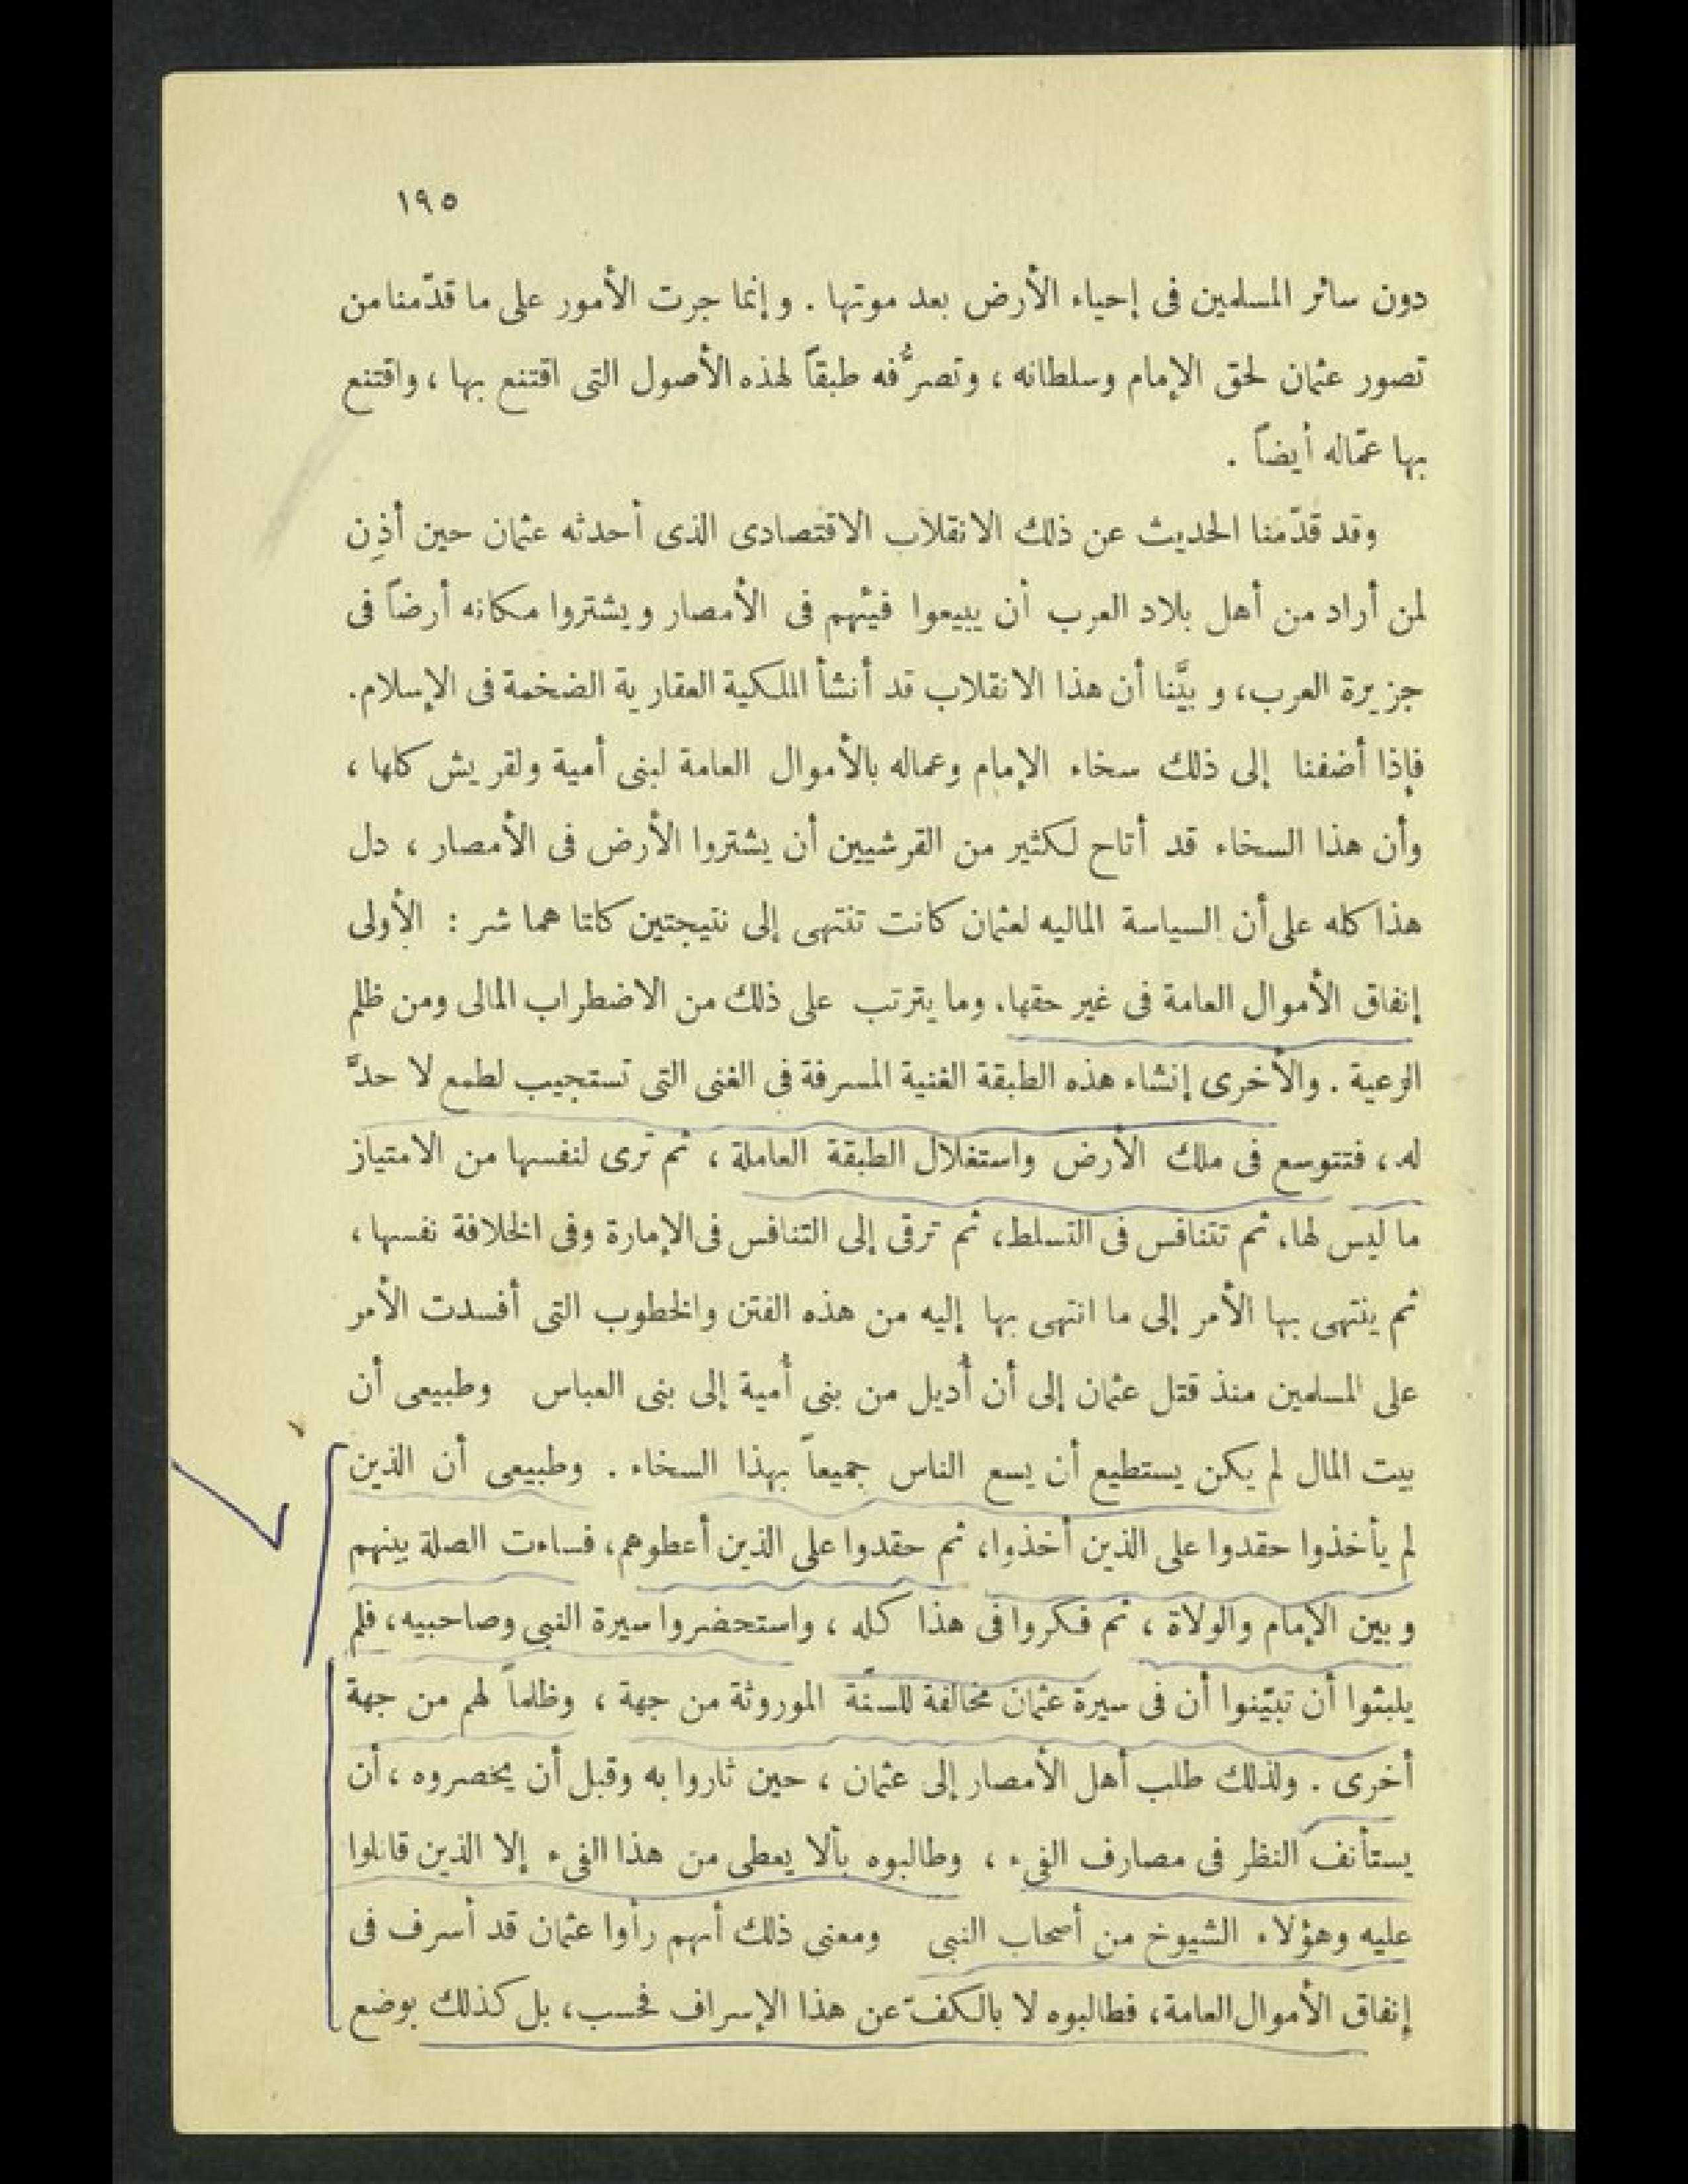 ١٩٥
دون سائر المسلمين فى إحياء الأرض بعد موتها . وإنما جرت الأمور على ما قدّمنا من
تصور عثمان لحق الإمام وسلطانه ، وتصرُّفه طبقاً لهذه الأصول التى اقتنع بها ، واقتنع
بها عمّاله أيضاً .
وقد قدّمنا الحديث عن ذلك الانقلاب الاقتصادى الذى أحدثه عثمان حين أذِن
لمن أراد من أهل بلاد العرب أن يبيعوا فيئهم فى الأمصار ويشتروا مكانه أرضاً فى
جزيرة العرب ، وبيَّنا أن هذا الانقلاب قد أنشأ الملكية العقارية الضخمة فى الإسلام .
فإذا أضفنا إلى ذلك سخاء الإمام وعماله بالأموال العامة لبنى أمية ولقريش كلها ،
وأن هذا السخاء قد أتاح لكثير من القرشيين أن يشتروا الأرض فى الأمصار ، دل
هذا كله على أن السياسة الماليه لعثمان كانت تنتهى إلى نتيجتين كلتا هما شر : الأولى
إنفاق الأموال العامة فى غير حقها ، وما يترتب على ذلك من الاضطراب المالى ومن ظلم
الرعية . والأخرى إنشاء هذه الطبقة الغنية المسرفة فى الغنى التى تستجيب لطمع لا حدَّ
له ، فتتوسع فى ملك الأرض واستغلال الطبقة العاملة ، ثم ترى لنفسها من الامتياز
ما ليس لها ، ثم تتنافس فى التسلط ، ثم ترقى إلى التنافس فى الإمارة وفى الخلافة نفسها ،
ثم ينتهى بها الأمر إلى ما انتهى بها إليه من هذه الفتن والخطوب التى أفسدت الأمر
على المسلمين منذ قتل عثمان إلى أن أُديل من بنى أُمية إلى بنى العباس وطبيعى أن
بيت المال لم يكن يستطيع أن يسع الناس جميعاً بهذا السخاء . وطبيعى أن الذين
لم يأخذوا حقدوا على الذين أخذوا ، ثم حقدوا على الذين أعطوهم ، فساءت الصلة بينهم
وبين الإمام والولاة ، ثم فكروا فى هذا كله ، واستحضروا سيرة النبى وصاحبيه ، فلم
يلبثوا أن تبيّنوا أن فى سيرة عثمان مخالفة للسنّة الموروثة من جهة ، وظلماً لهم من جهة
أخرى . ولذلك طلب أهل الأمصار إلى عثمان ، حين ثاروا به وقبل أن يحصروه ، أن
يستأنف النظر فى مصارف الفىء ، وطالبوه بألا يعطى من هذا الفىء إلا الذين قاتلوا
عليه وهؤلاء الشيوخ من أصحاب النبى ومعنى ذلك أنهم رأوا عثمان قد أسرف فى
إنفاق الأموال العامة ، فطالبوه لا بالكفّ عن هذا الإسراف فحسب ، بل كذلك بوضع